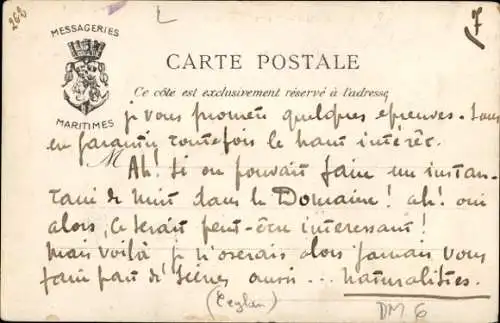 262
L
7
MESSAGERIES
MARITIMES
CARTE POSTALE
Ce côté est exclusivement réservé à l'adresse
je vous promets quelques épreuves. Sans
en garantir toutefois le haut intérêt.
M
Ah! Si on pouvait faire un instan-
tané de nuit dans le Domaine! ah! oui
alors, ce serait peut-être intéressant!
Mais voilà je n'oserais alors jamais vous
faire part de scènes aussi... naturalistes.
(Ceylan)
DM 6